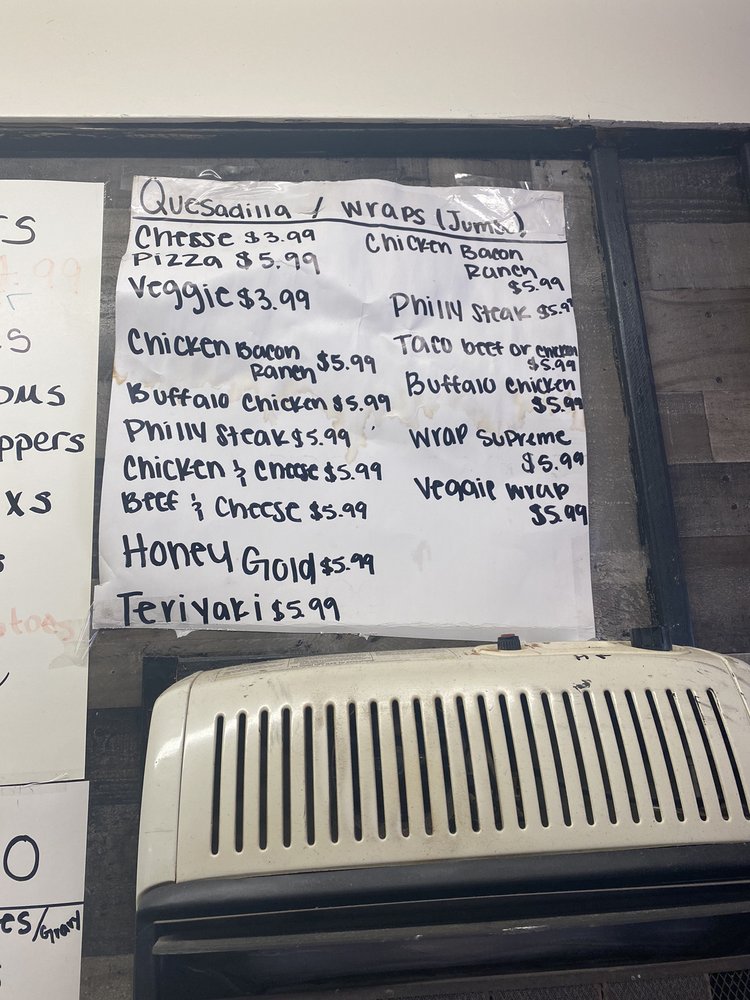 Quesadilla / Wraps (Jumbo)
Cheese $3.99
Pizza $5.99
Veggie $3.99
Chicken Bacon
Ranch $5.99
Buffalo Chicken $5.99
Philly Steak $5.99
Chicken & Cheese $5.99
Beef & Cheese $5.99
Honey Gold $5.99
Teriyaki $5.99
Chicken Bacon
Ranch
$5.99
Philly Steak $5.9
Taco beef or chicken
$5.99
Buffalo chicken
$5.99
Wrap Supreme
$5.99
Veggie wrap
$5.99
ppers
O
es/Gravy